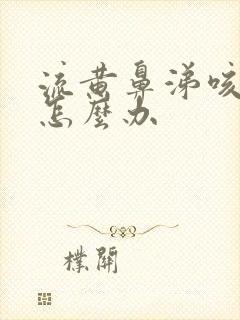 流黄鼻涕咳
怎麼办
樸開